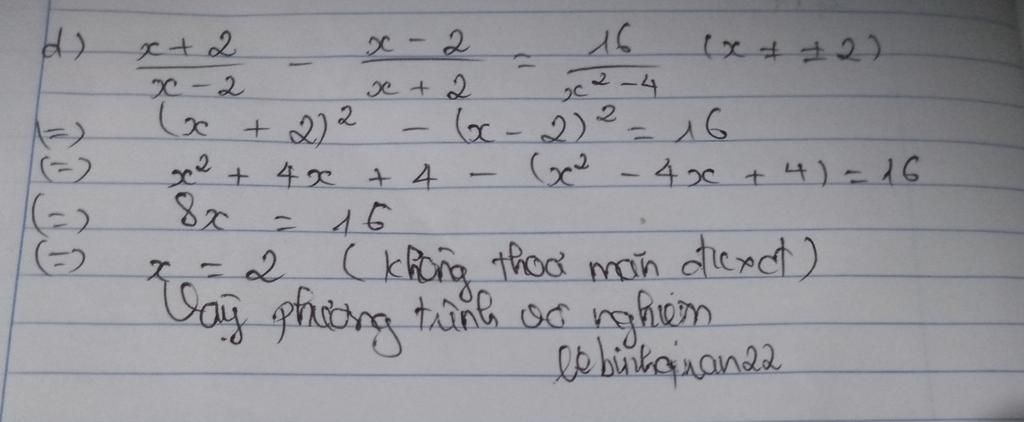 d) (x + 2)/(x - 2) - (x - 2)/(x + 2) = 16/(x² - 4) (x ≠ ±2)
(=) (x + 2)² - (x - 2)² = 16
(=) x² + 4x + 4 - (x² - 4x + 4) = 16
(=) 8x = 16
(=) x = 2 (không thoả mãn đkxđ)
Vậy phương trình vô nghiệm
lebinhquan22